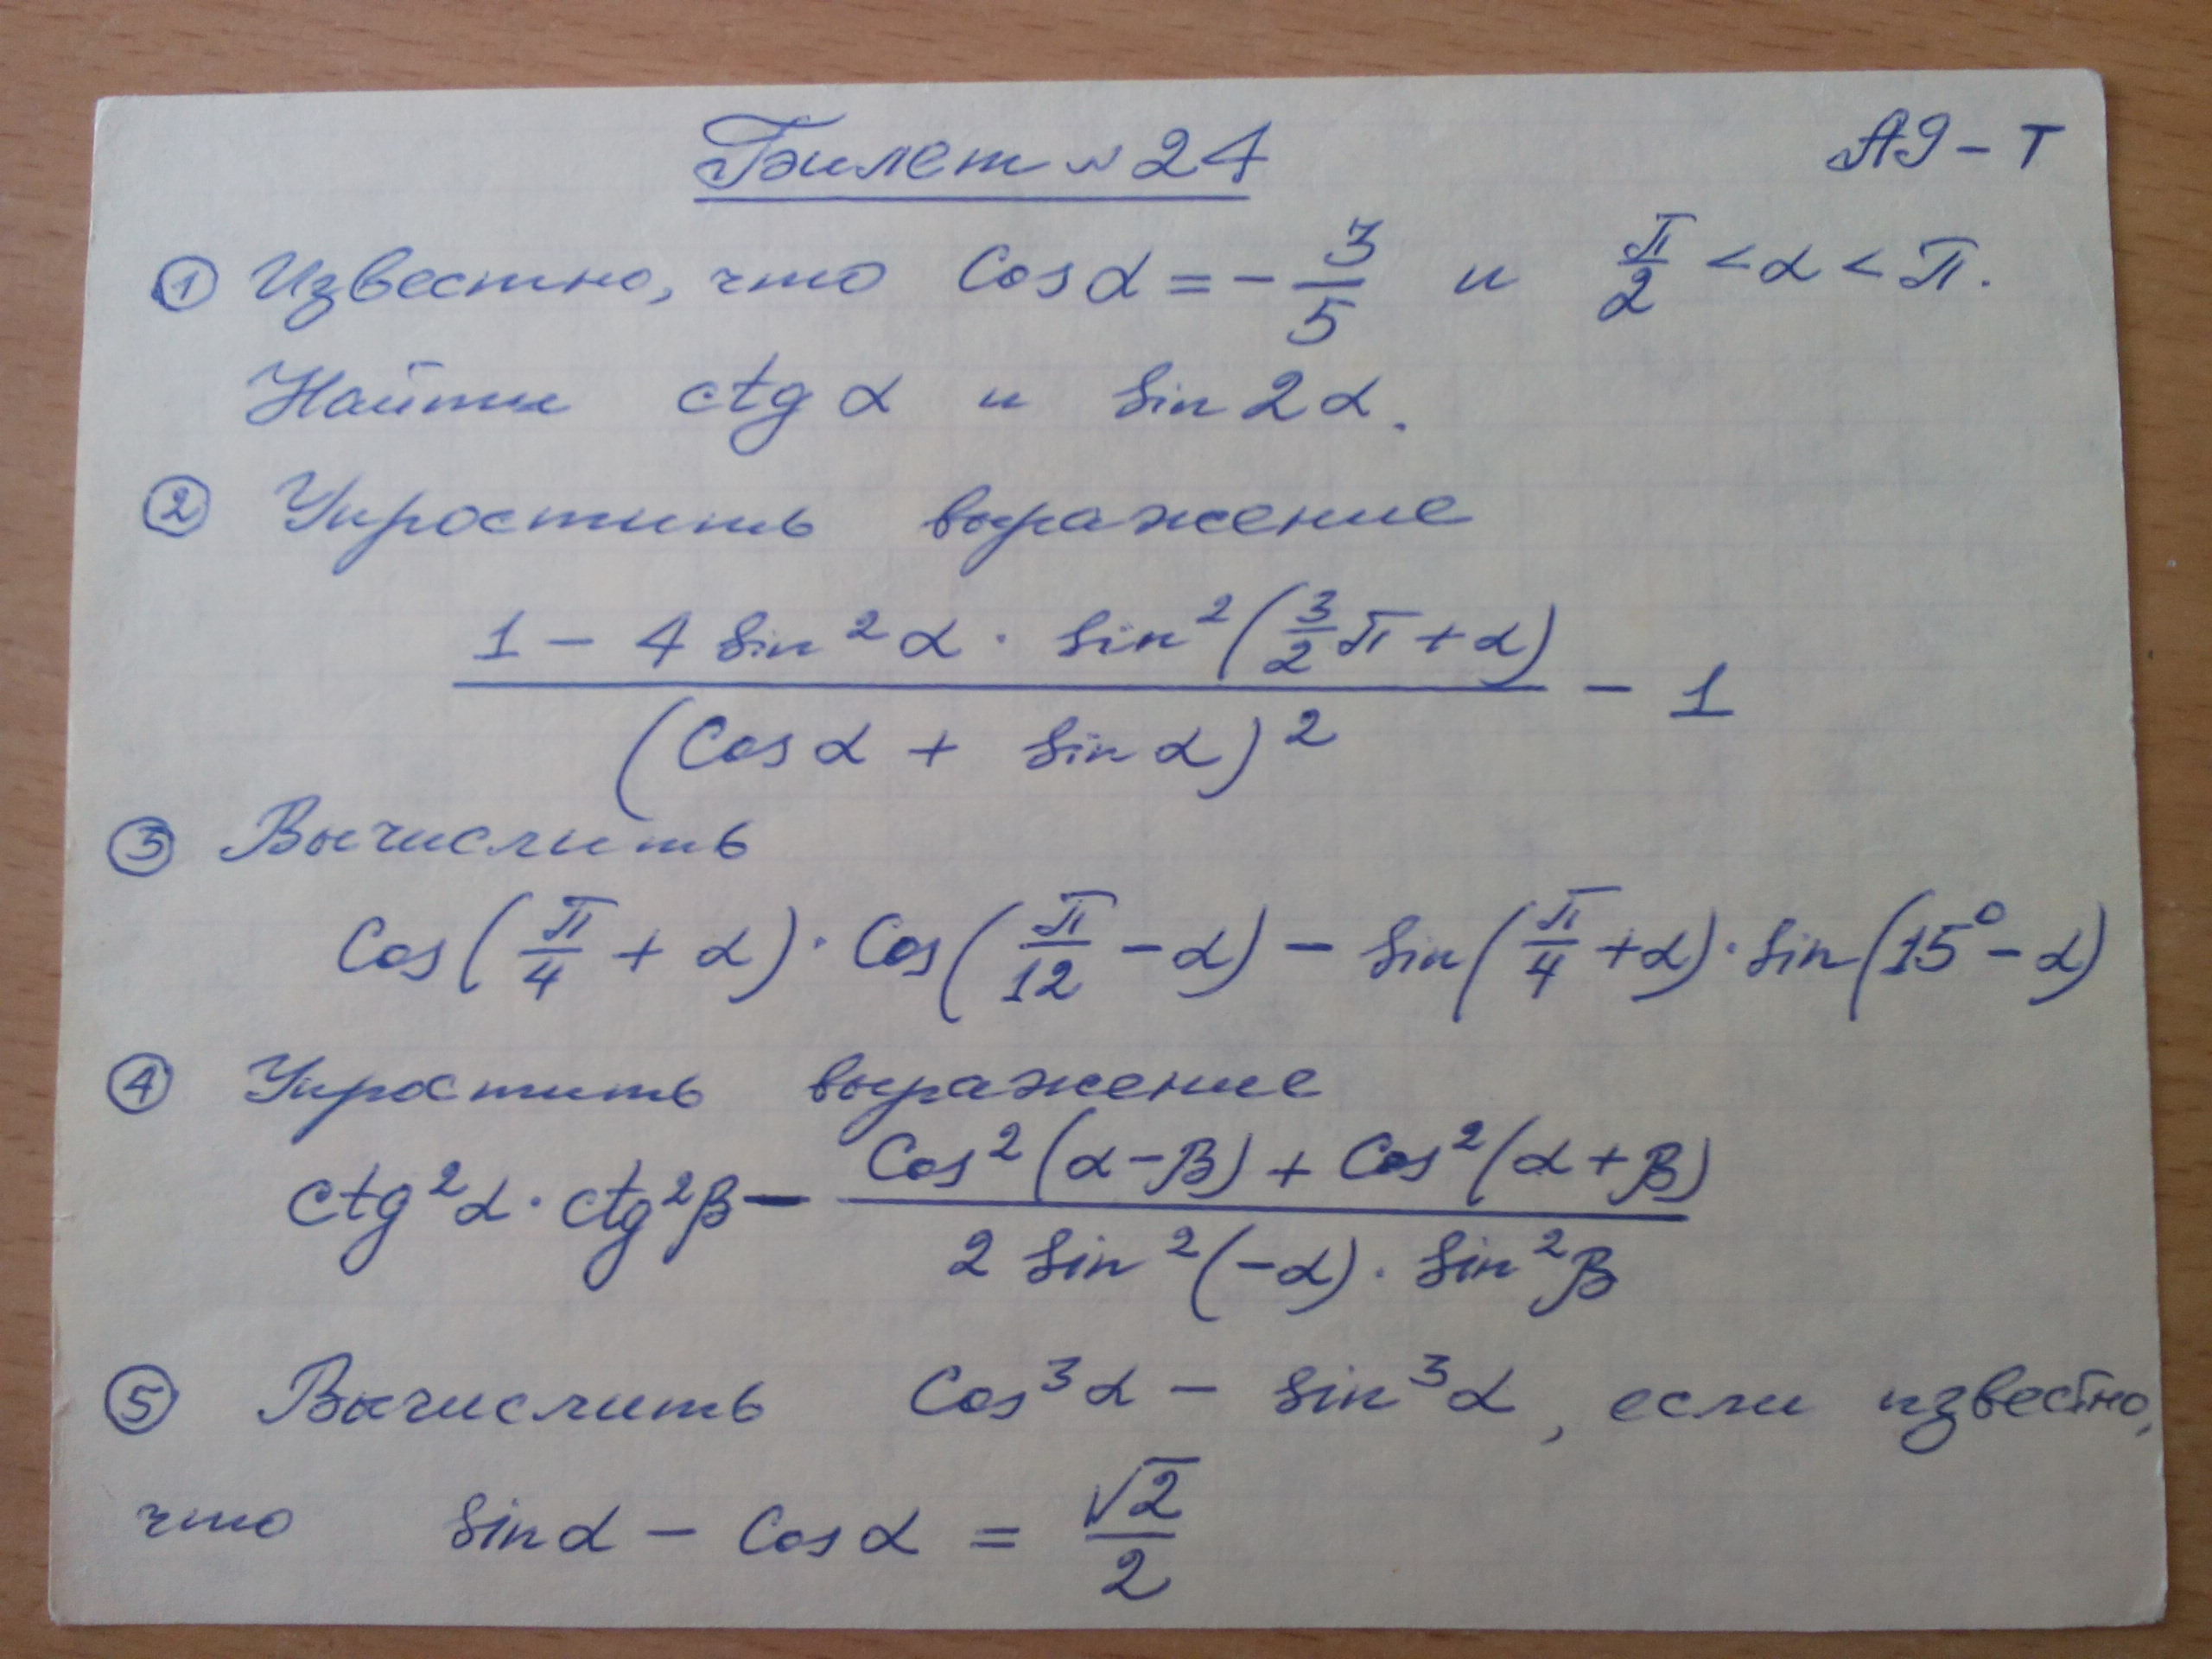 Билет №24
А9 – Т
① Известно, что cos α = - 3/5 и π/2 < α < π.
Найти ctg α и sin 2α.
② Упростить выражение
(1 – 4 sin²α · sin²(3/2 π + α)) / (cos α + sin α)² – 1
③ Вычислить
cos(π/4 + α) · cos(π/12 – α) – sin(π/4 + α) · sin(15° – α)
④ Упростить выражение
ctg²α · ctg²β – (cos²(α – β) + cos²(α + β)) / (2 sin²(–α) · sin²β)
⑤ Вычислить cos³α – sin³α, если известно,
что sin α – cos α = √2/2